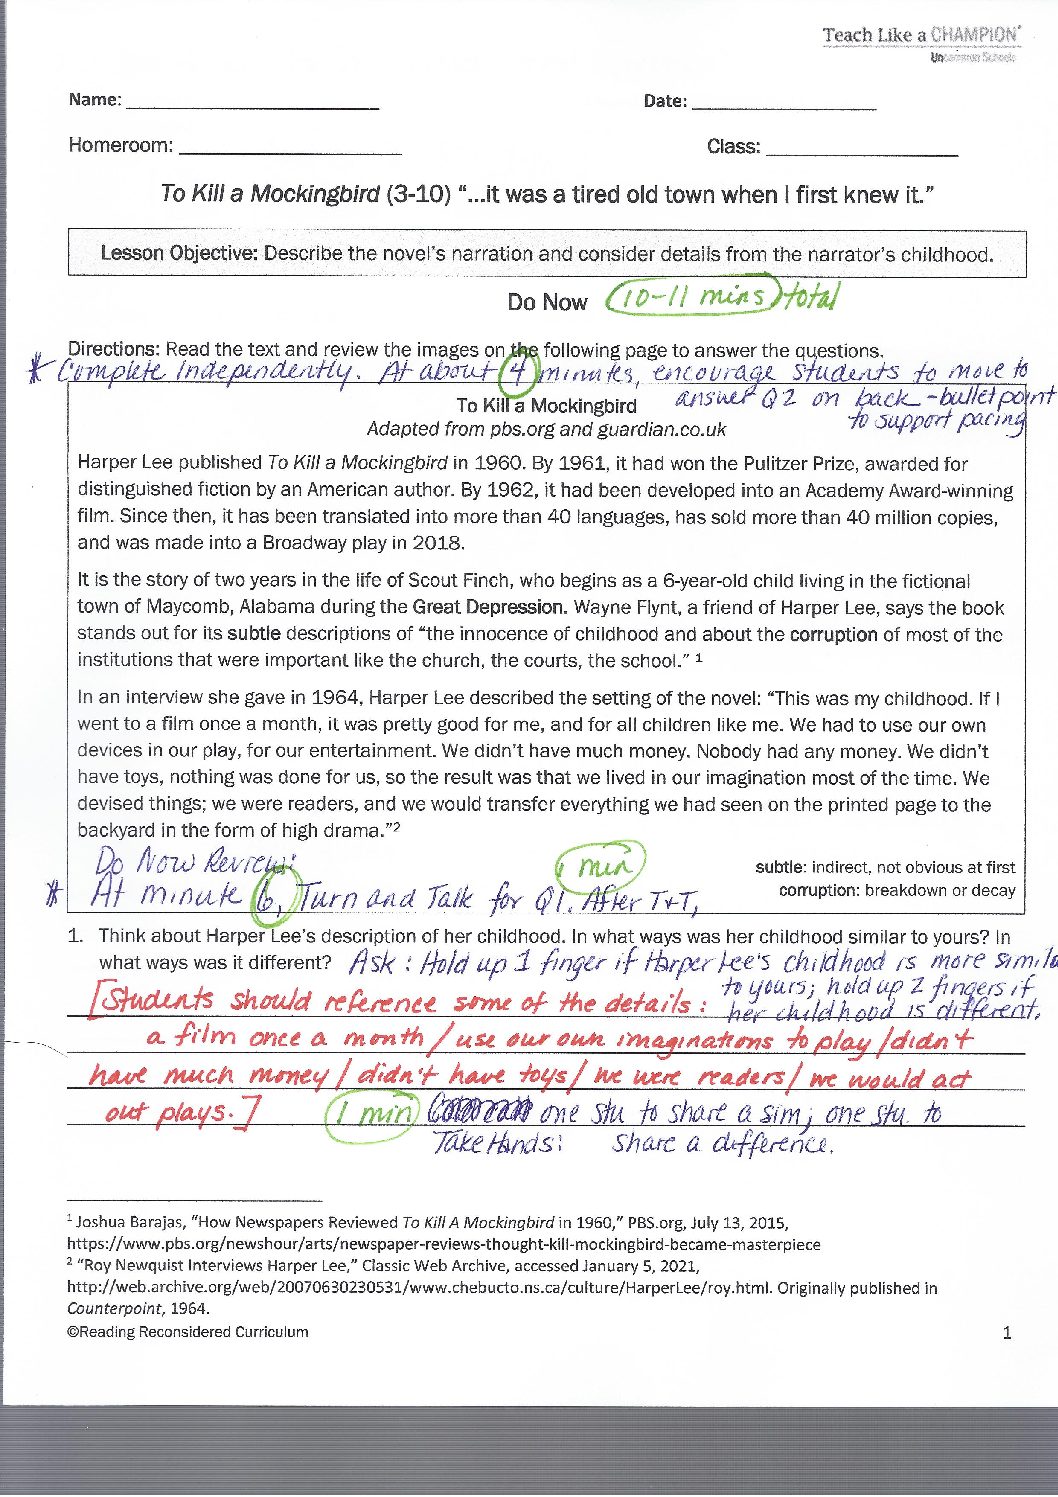 Teach Like a CHAMPION
Uncommon Schools
Name: ____________ Date: ____________
Homeroom: ____________ Class: ____________
To Kill a Mockingbird (3-10) “...it was a tired old town when I first knew it.”
Lesson Objective: Describe the novel’s narration and consider details from the narrator’s childhood.
Do Now (10-11 mins) total
Directions: Read the text and review the images on the following page to answer the questions.
* Complete independently. At about 4 minutes, encourage students to move to
answer Q2 on back - bullet point
to support pacing
To Kill a Mockingbird
Adapted from pbs.org and guardian.co.uk
Harper Lee published To Kill a Mockingbird in 1960. By 1961, it had won the Pulitzer Prize, awarded for
distinguished fiction by an American author. By 1962, it had been developed into an Academy Award-winning
film. Since then, it has been translated into more than 40 languages, has sold more than 40 million copies,
and was made into a Broadway play in 2018.
It is the story of two years in the life of Scout Finch, who begins as a 6-year-old child living in the fictional
town of Maycomb, Alabama during the Great Depression. Wayne Flynt, a friend of Harper Lee, says the book
stands out for its subtle descriptions of “the innocence of childhood and about the corruption of most of the
institutions that were important like the church, the courts, the school.” 1
In an interview she gave in 1964, Harper Lee described the setting of the novel: “This was my childhood. If I
went to a film once a month, it was pretty good for me, and for all children like me. We had to use our own
devices in our play, for our entertainment. We didn’t have much money. Nobody had any money. We didn’t
have toys, nothing was done for us, so the result was that we lived in our imagination most of the time. We
devised things; we were readers, and we would transfer everything we had seen on the printed page to the
backyard in the form of high drama.”2
Do Now Review:
* At minute 6, Turn and Talk for Q1. After T+T,
1 min
subtle: indirect, not obvious at first
corruption: breakdown or decay
1. Think about Harper Lee’s description of her childhood. In what ways was her childhood similar to yours? In
what ways was it different? Ask: Hold up 1 finger if Harper Lee's childhood is more simila
to yours; hold up 2 fingers if
her childhood is different.
[Students should reference some of the details:
a film once a month / use our own imaginations to play / didn't
have much money / didn't have toys / we were readers / we would act
out plays.] 1 min one stu to share a sim; one stu to
Take Hands: share a difference.
1 Joshua Barajas, “How Newspapers Reviewed To Kill A Mockingbird in 1960,” PBS.org, July 13, 2015,
https://www.pbs.org/newshour/arts/newspaper-reviews-thought-kill-mockingbird-became-masterpiece
2 “Roy Newquist Interviews Harper Lee,” Classic Web Archive, accessed January 5, 2021,
http://web.archive.org/web/20070630230531/www.chebucto.ns.ca/culture/HarperLee/roy.html. Originally published in
Counterpoint, 1964.
©Reading Reconsidered Curriculum 1